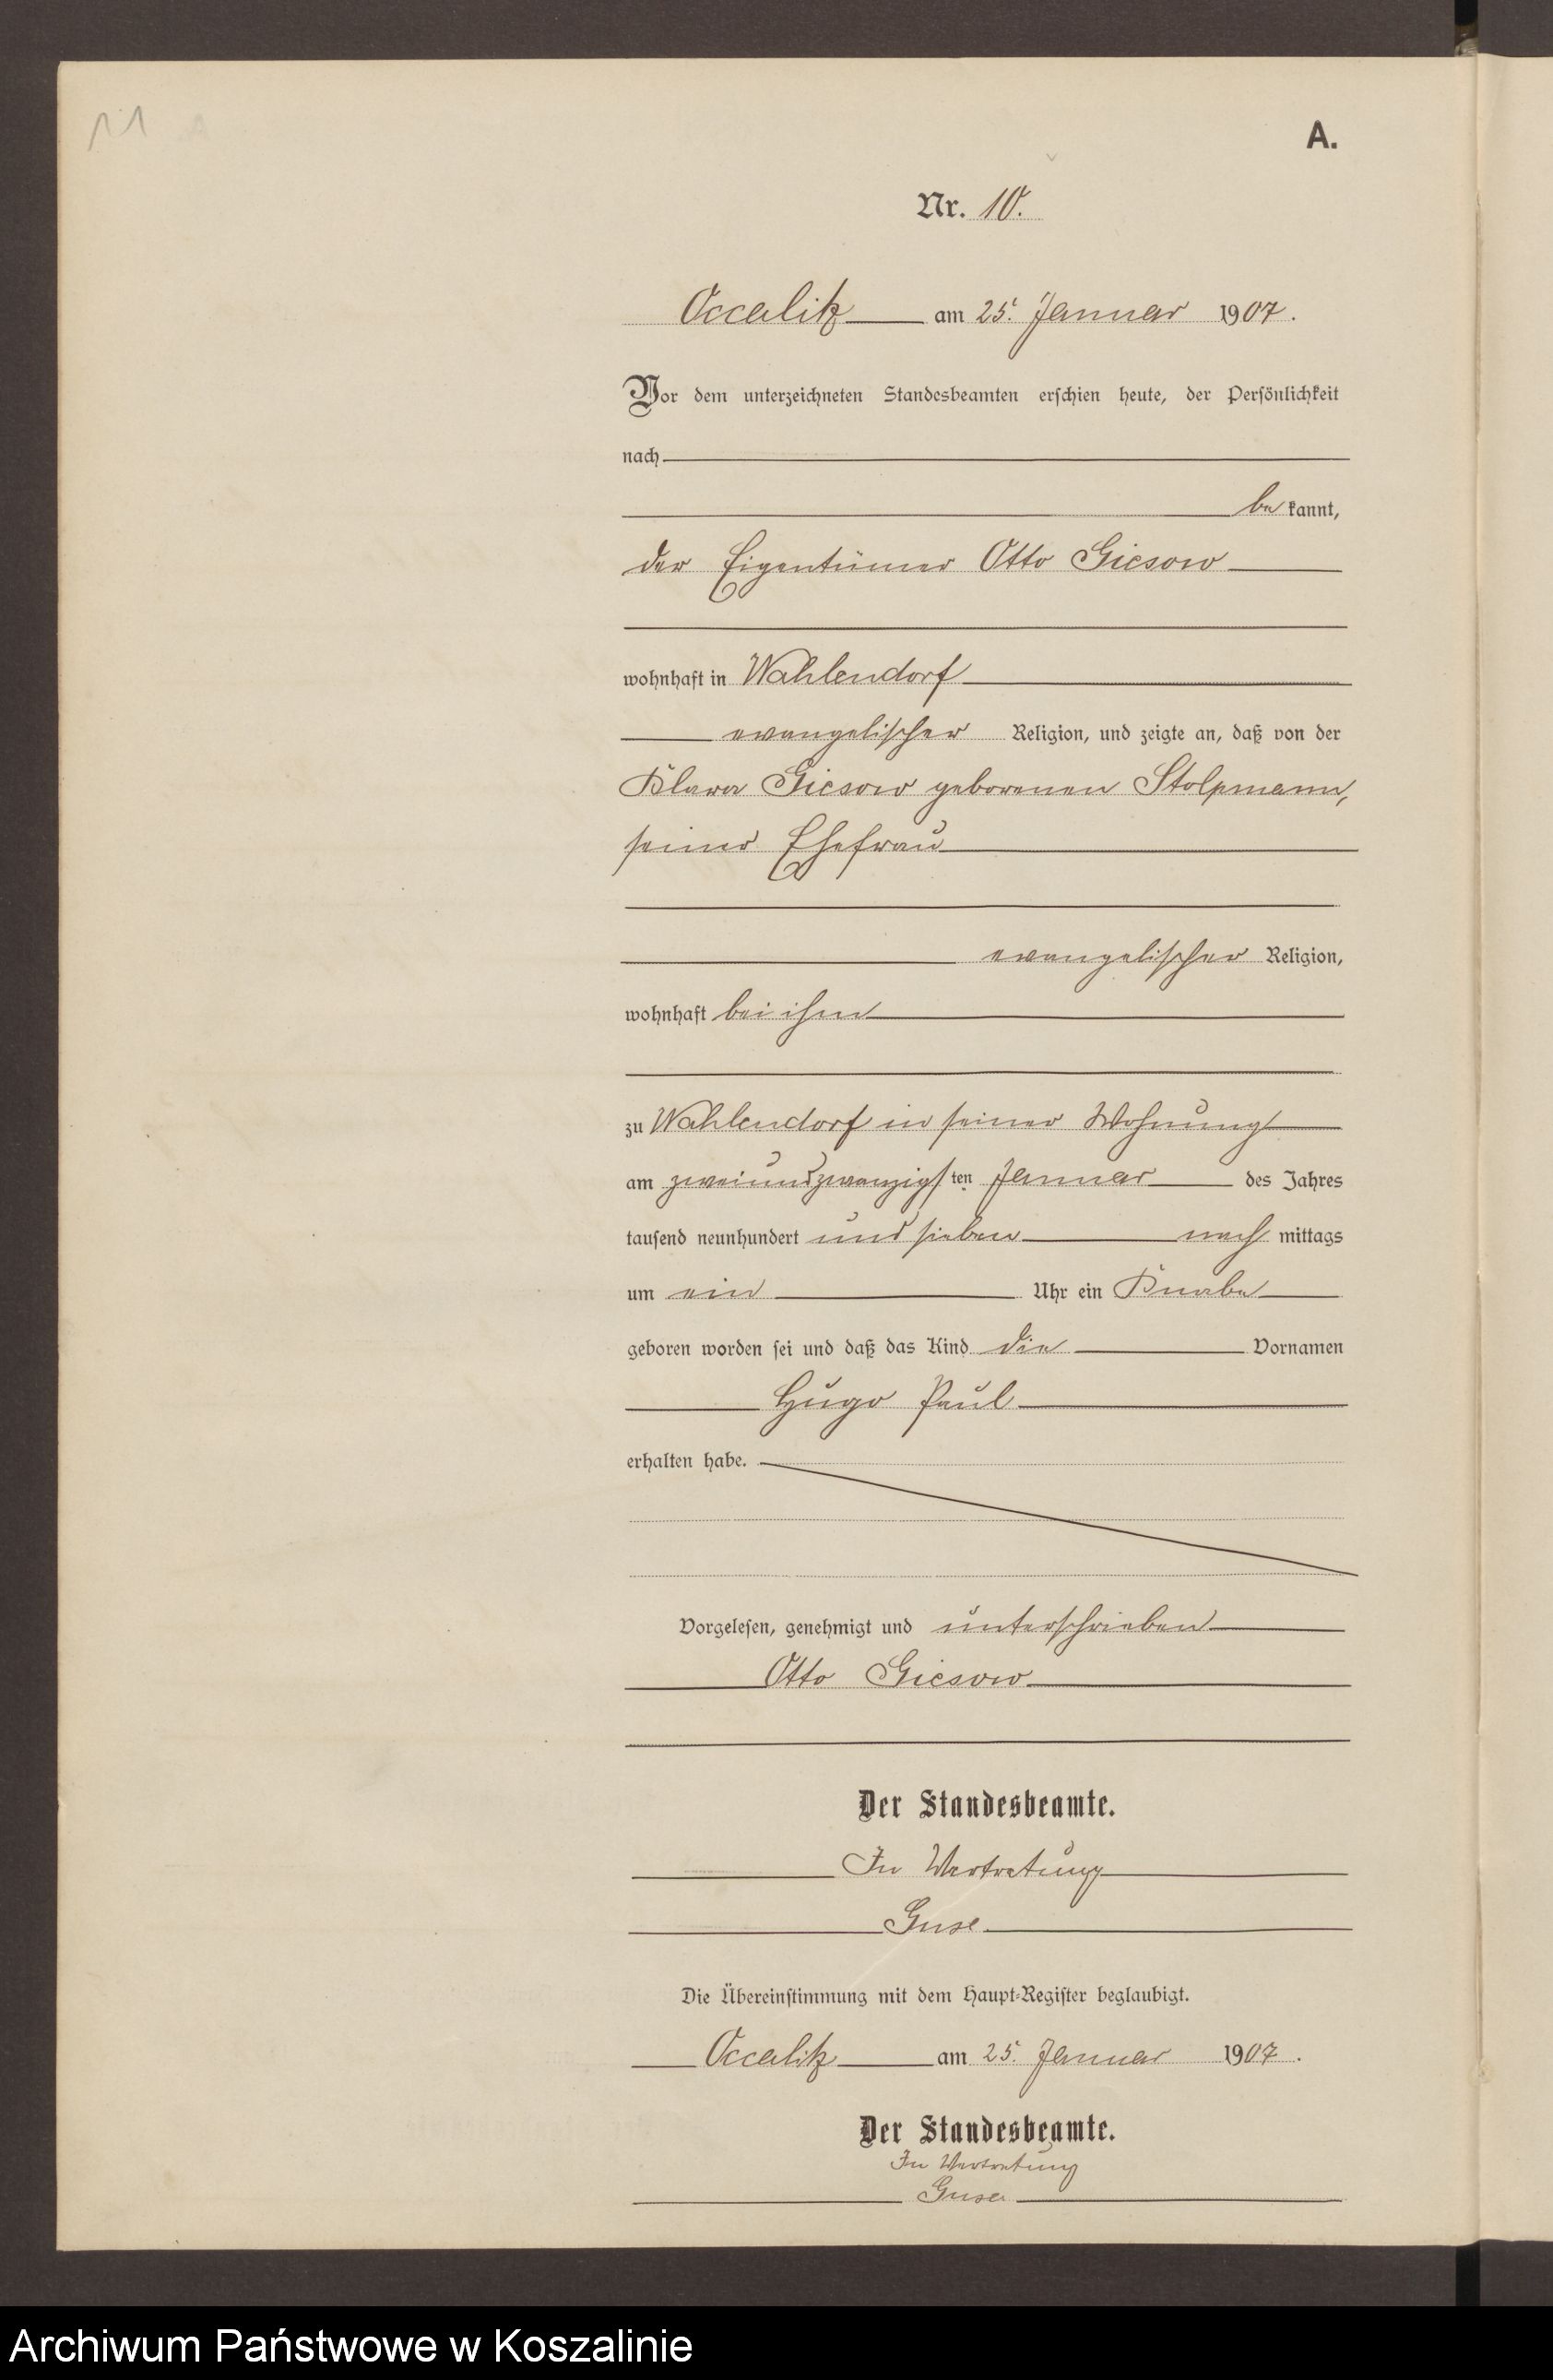 11
A.
Nr. 10.
Occalitz am 25. Januar 1907.
Vor dem unterzeichneten Standesbeamten erschien heute, der Persönlichkeit
nach
be kannt,
der Eigentümer Otto Giesow
wohnhaft in Wahlendorf
evangelischer Religion, und zeigte an, daß von der
Klara Giesow geborenen Stolpmann,
seiner Ehefrau
evangelischer Religion,
wohnhaft bei ihm
zu Wahlendorf in seiner Wohnung
am zweiundzwanzigsten Januar des Jahres
tausend neunhundert und sieben nach mittags
um ein Uhr ein Knabe
geboren worden sei und daß das Kind die Vornamen
Hugo Paul
erhalten habe.
Vorgelesen, genehmigt und unterschrieben
Otto Giesow
Der Standesbeamte.
In Vertretung
Guse
Die Übereinstimmung mit dem Haupt-Register beglaubigt.
Occalitz am 25. Januar 1907.
Der Standesbeamte.
In Vertretung
Guse
Archiwum Państwowe w Koszalinie